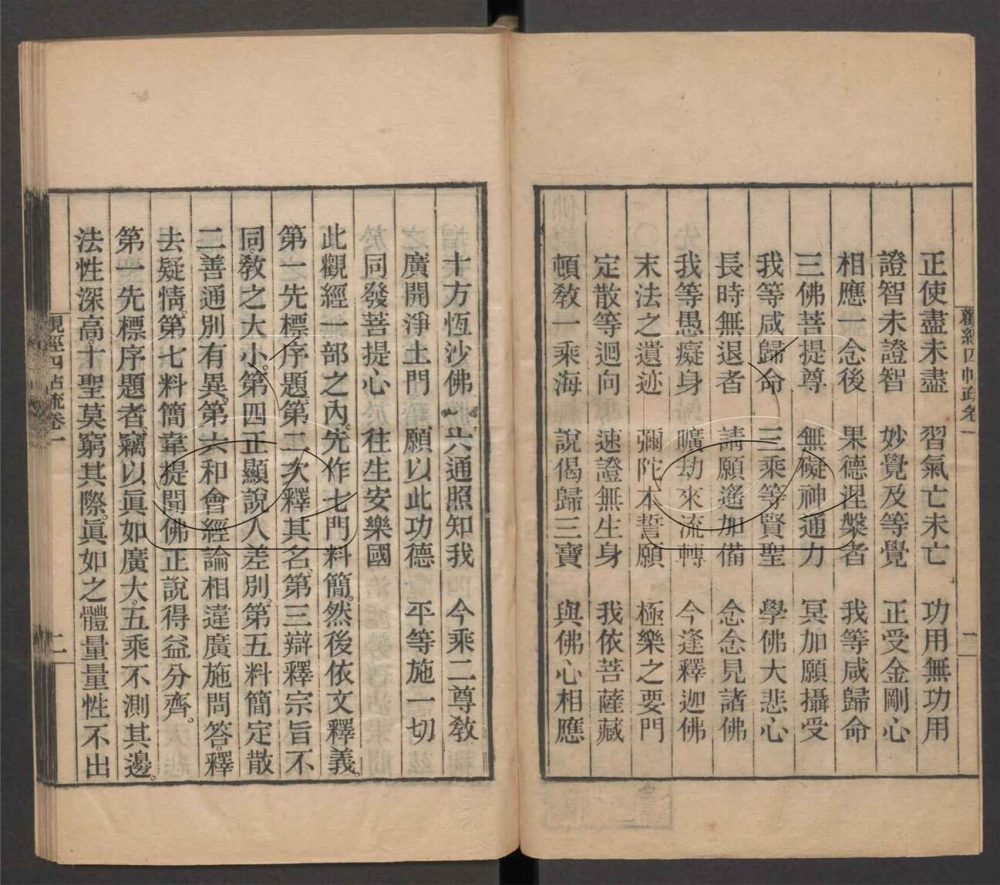 正使盡未盡　習氣亡未亡　功用無功用
證智未證智　妙覺及等覺　正受金剛心
相應一念後　果德涅槃者　我等咸歸命
三佛菩提尊　無礙神通力　冥加願攝受
我等咸歸命　三乘等賢聖　學佛大悲心
長時無退者　請願遙加備　念念見諸佛
我等愚癡身　曠劫來流轉　今逢釋迦佛
末法之遺迹　彌陀本誓願　極樂之要門
定散等迴向　速證無生身　我依菩薩藏
頓教一乘海　說偈歸三寶　與佛心相應
觀經四帖疏卷一
二
十方恆沙佛　六通照知我　今乘二尊教
廣開淨土門　願以此功德　平等施一切
同發菩提心　往生安樂國
此觀經一部之內。先作七門料簡。然後依文釋義。
第一先標序題。第二次釋其名。第三辯釋宗旨不
同。教之大小。第四正顯說人差別。第五料簡定散
二善通別有異。第六和會經論相違廣施問答。釋
去疑情。第七料簡韋提聞佛正說得益分齊。
第一先標序題者。竊以眞如廣大。五乘不測其邊。
法性深高十聖莫窮其際眞如之體量量性不出
觀經四帖疏卷一
二